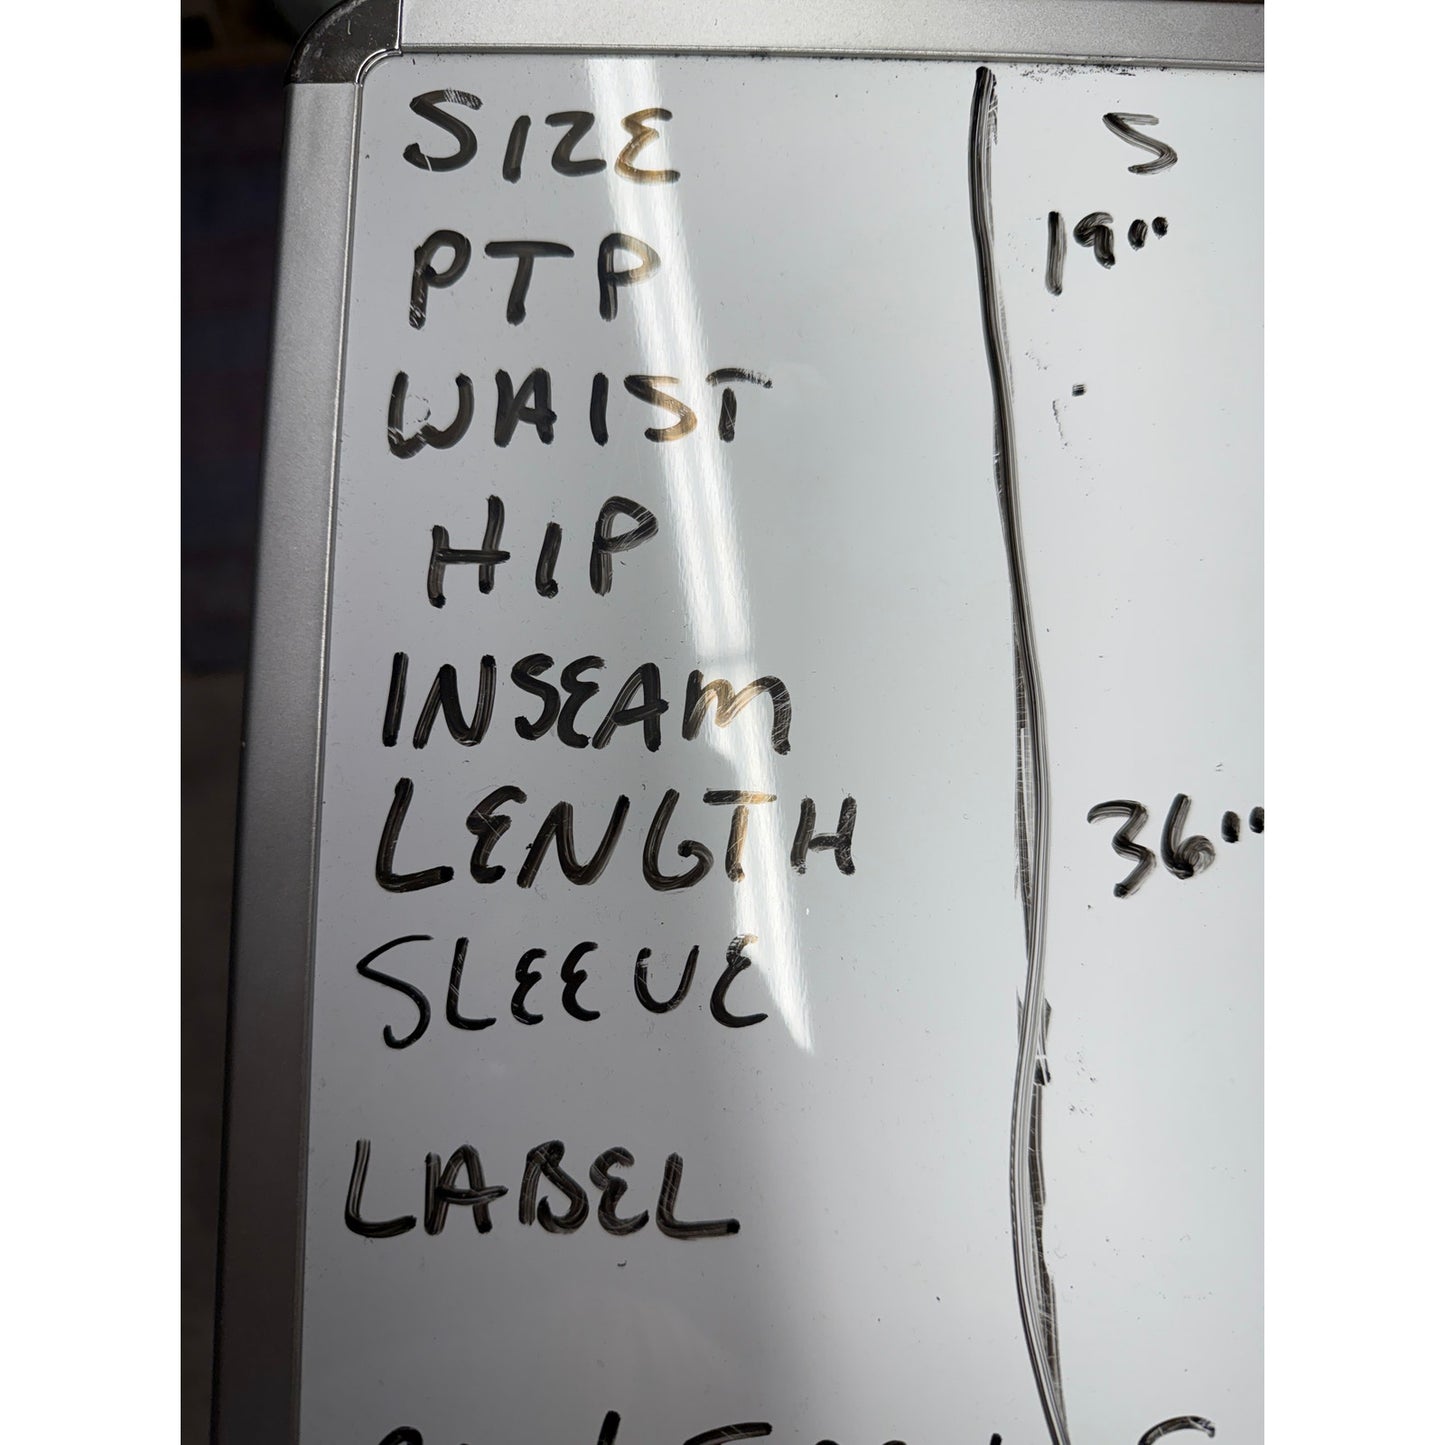 SIZE S
PTP 19"
WAIST
HIP
INSEAM
LENGTH 36"
SLEEVE
LABEL